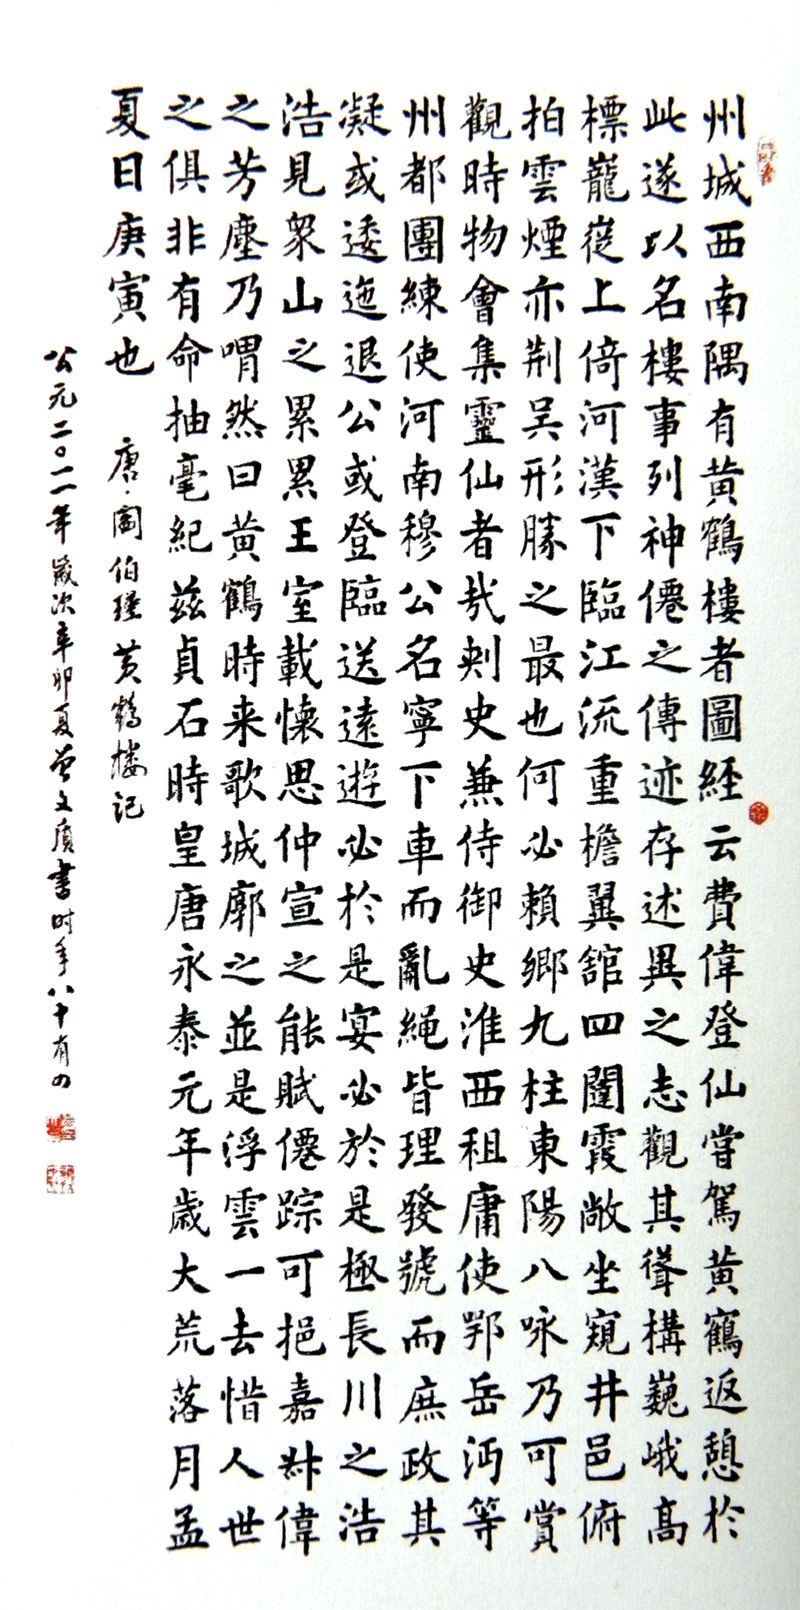 州城西南隅有黄鶴樓者圖經云費偉登仙嘗駕黄鶴返憩於
此遂以名樓事列神僊之傳迹存述異之志觀其聳構巍峨高
標巃嵸上倚河漢下臨江流重檐翼舘四闥霞敞坐窺井邑俯
拍雲煙亦荆吴形勝之最也何必賴鄉九柱東陽八咏乃可賞
觀時物會集靈仙者㦲刺史兼侍御史淮西租庸使鄂岳沔等
州都團練使河南穆公名寧下車而亂繩皆理發號而庶政其
凝或逶迤退公或登臨送遠遊必於是宴必於是極長川之浩
浩見衆山之累累王室載懷思仲宣之能賦僊踪可挹嘉叔偉
之芳塵乃喟然曰黄鶴時来歌城廓之並是浮雲一去惜人世
之俱非有命抽毫紀兹貞石時皇唐永泰元年歲大荒落月孟
夏日庚寅也 唐·閻伯瑾黄鶴楼記
公元二〇一一年歲次辛卯夏曾文質書时年八十有四